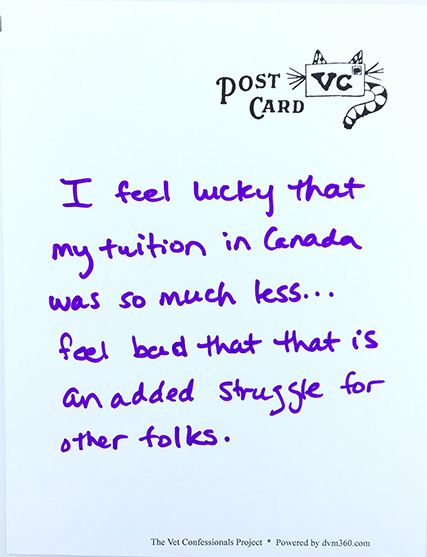 POST CARD
VC
I feel lucky that
my tuition in Canada
was so much less...
feel bad that that is
an added struggle for
other folks.
The Vet Confessionals Project * Powered by dvm360.com